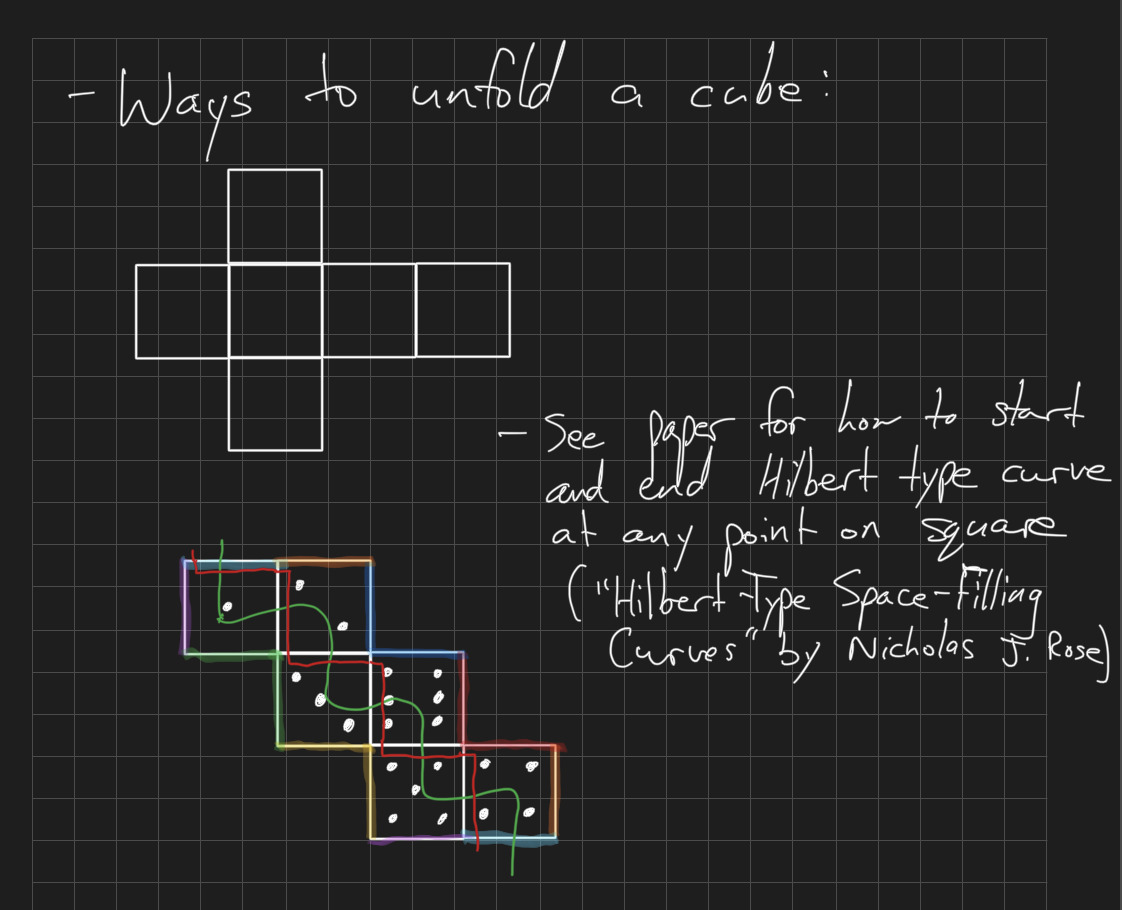 - Ways to unfold a cube:
- See paper for how to start
and end Hilbert type curve
at any point on square
("Hilbert-Type Space-Filling
Curves" by Nicholas J. Rose)